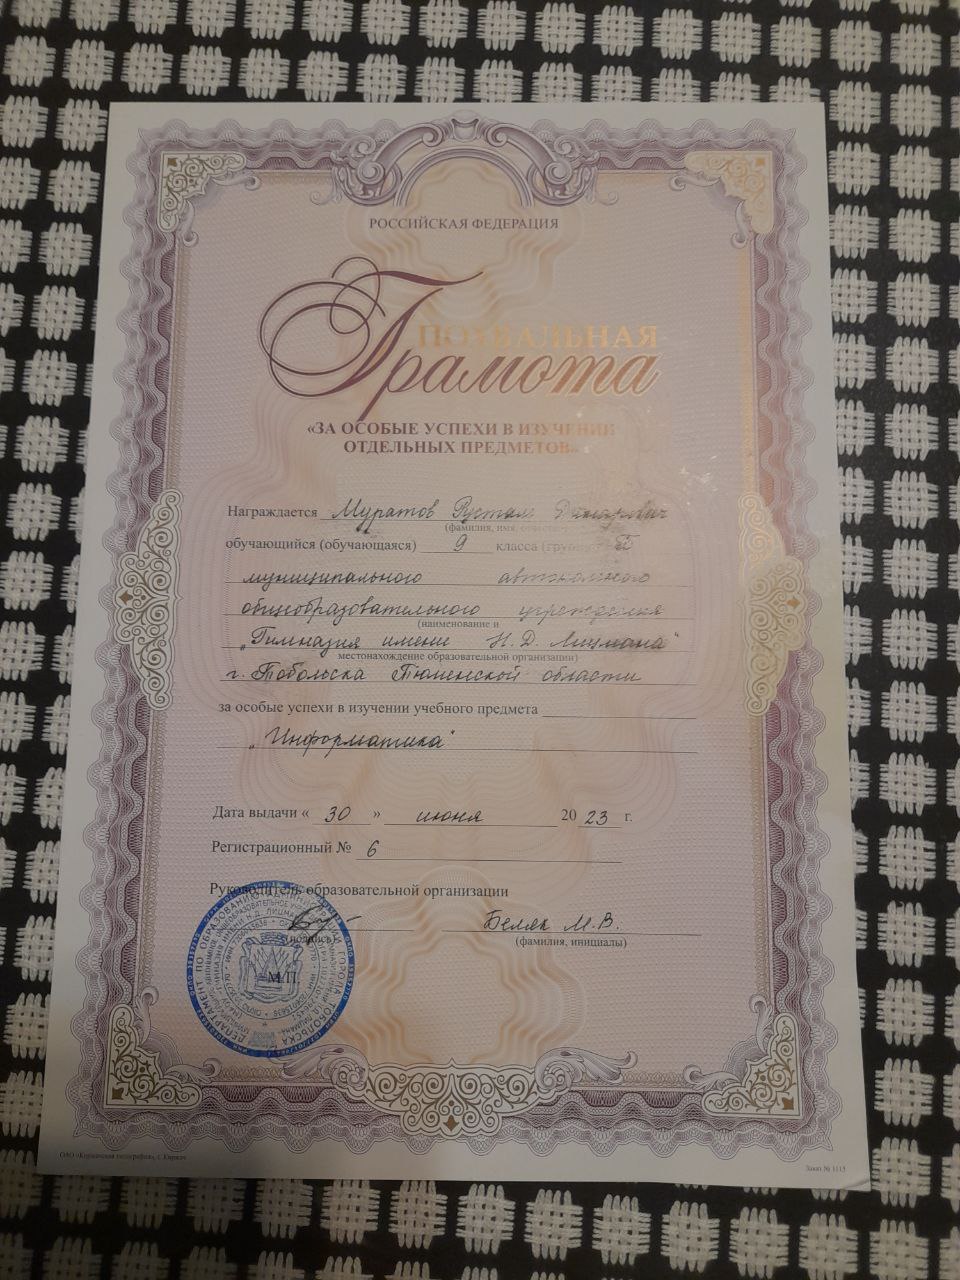 РОССИЙСКАЯ ФЕДЕРАЦИЯ
ПОХВАЛЬНАЯ
Грамота
«ЗА ОСОБЫЕ УСПЕХИ В ИЗУЧЕНИИ
ОТДЕЛЬНЫХ ПРЕДМЕТОВ»
Награждается Муратов Рустам
(фамилия, имя, отчество)
обучающийся (обучающаяся) 9 класса (группы)
муниципального автономного
общеобразовательного учреждения
(наименование и
"Гимназия имени Н.Д. Лицмана"
местонахождение образовательной организации)
г. Тобольска Тюменской области
за особые успехи в изучении учебного предмета
"Информатика"
Дата выдачи « 30 » июня 2023 г.
Регистрационный № 6
Руководитель образовательной организации
Беляк М.В.
(подпись) (фамилия, инициалы)
М.П.
ОАО «Киржачская типография», г. Киржач
Заказ № 1115